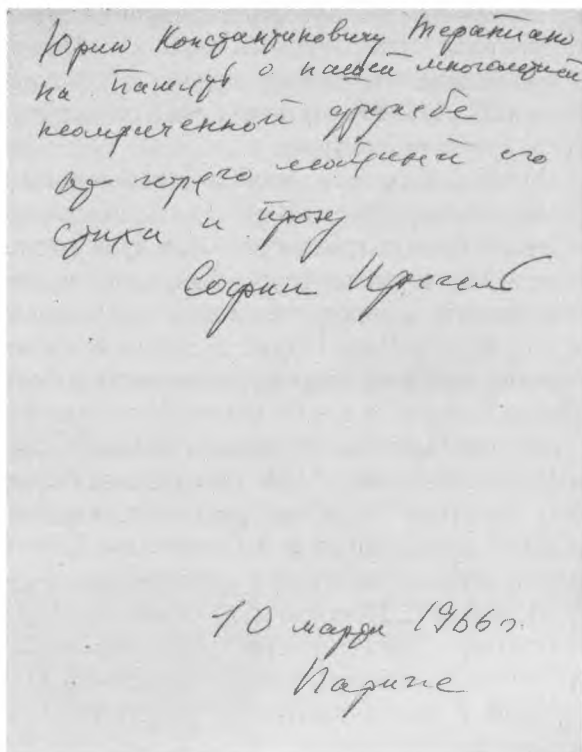 Юрию Константиновичу Терапиано
на память о нашей многолетней
неомраченной дружбе
от горячо любящей его
стихи и прозу
Софии Прегель
10 марта 1966 г.
Париж